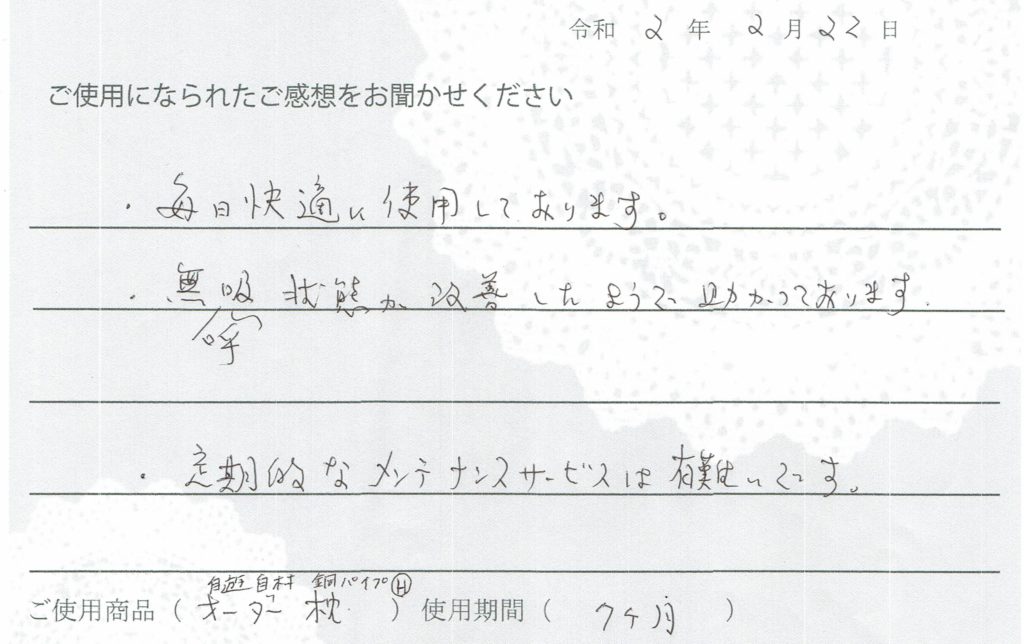 令和 2 年 2 月 22 日
ご使用になられたご感想をお聞かせください
・毎日快適に使用しております。
・無呼吸 状態が改善したようで助かっております.
・定期的なメンテナンスサービスは有難いです。
自遊自材 銅パイプ Ⓗ
ご使用商品（ オーダー枕 ）使用期間（ 7ヶ月 ）